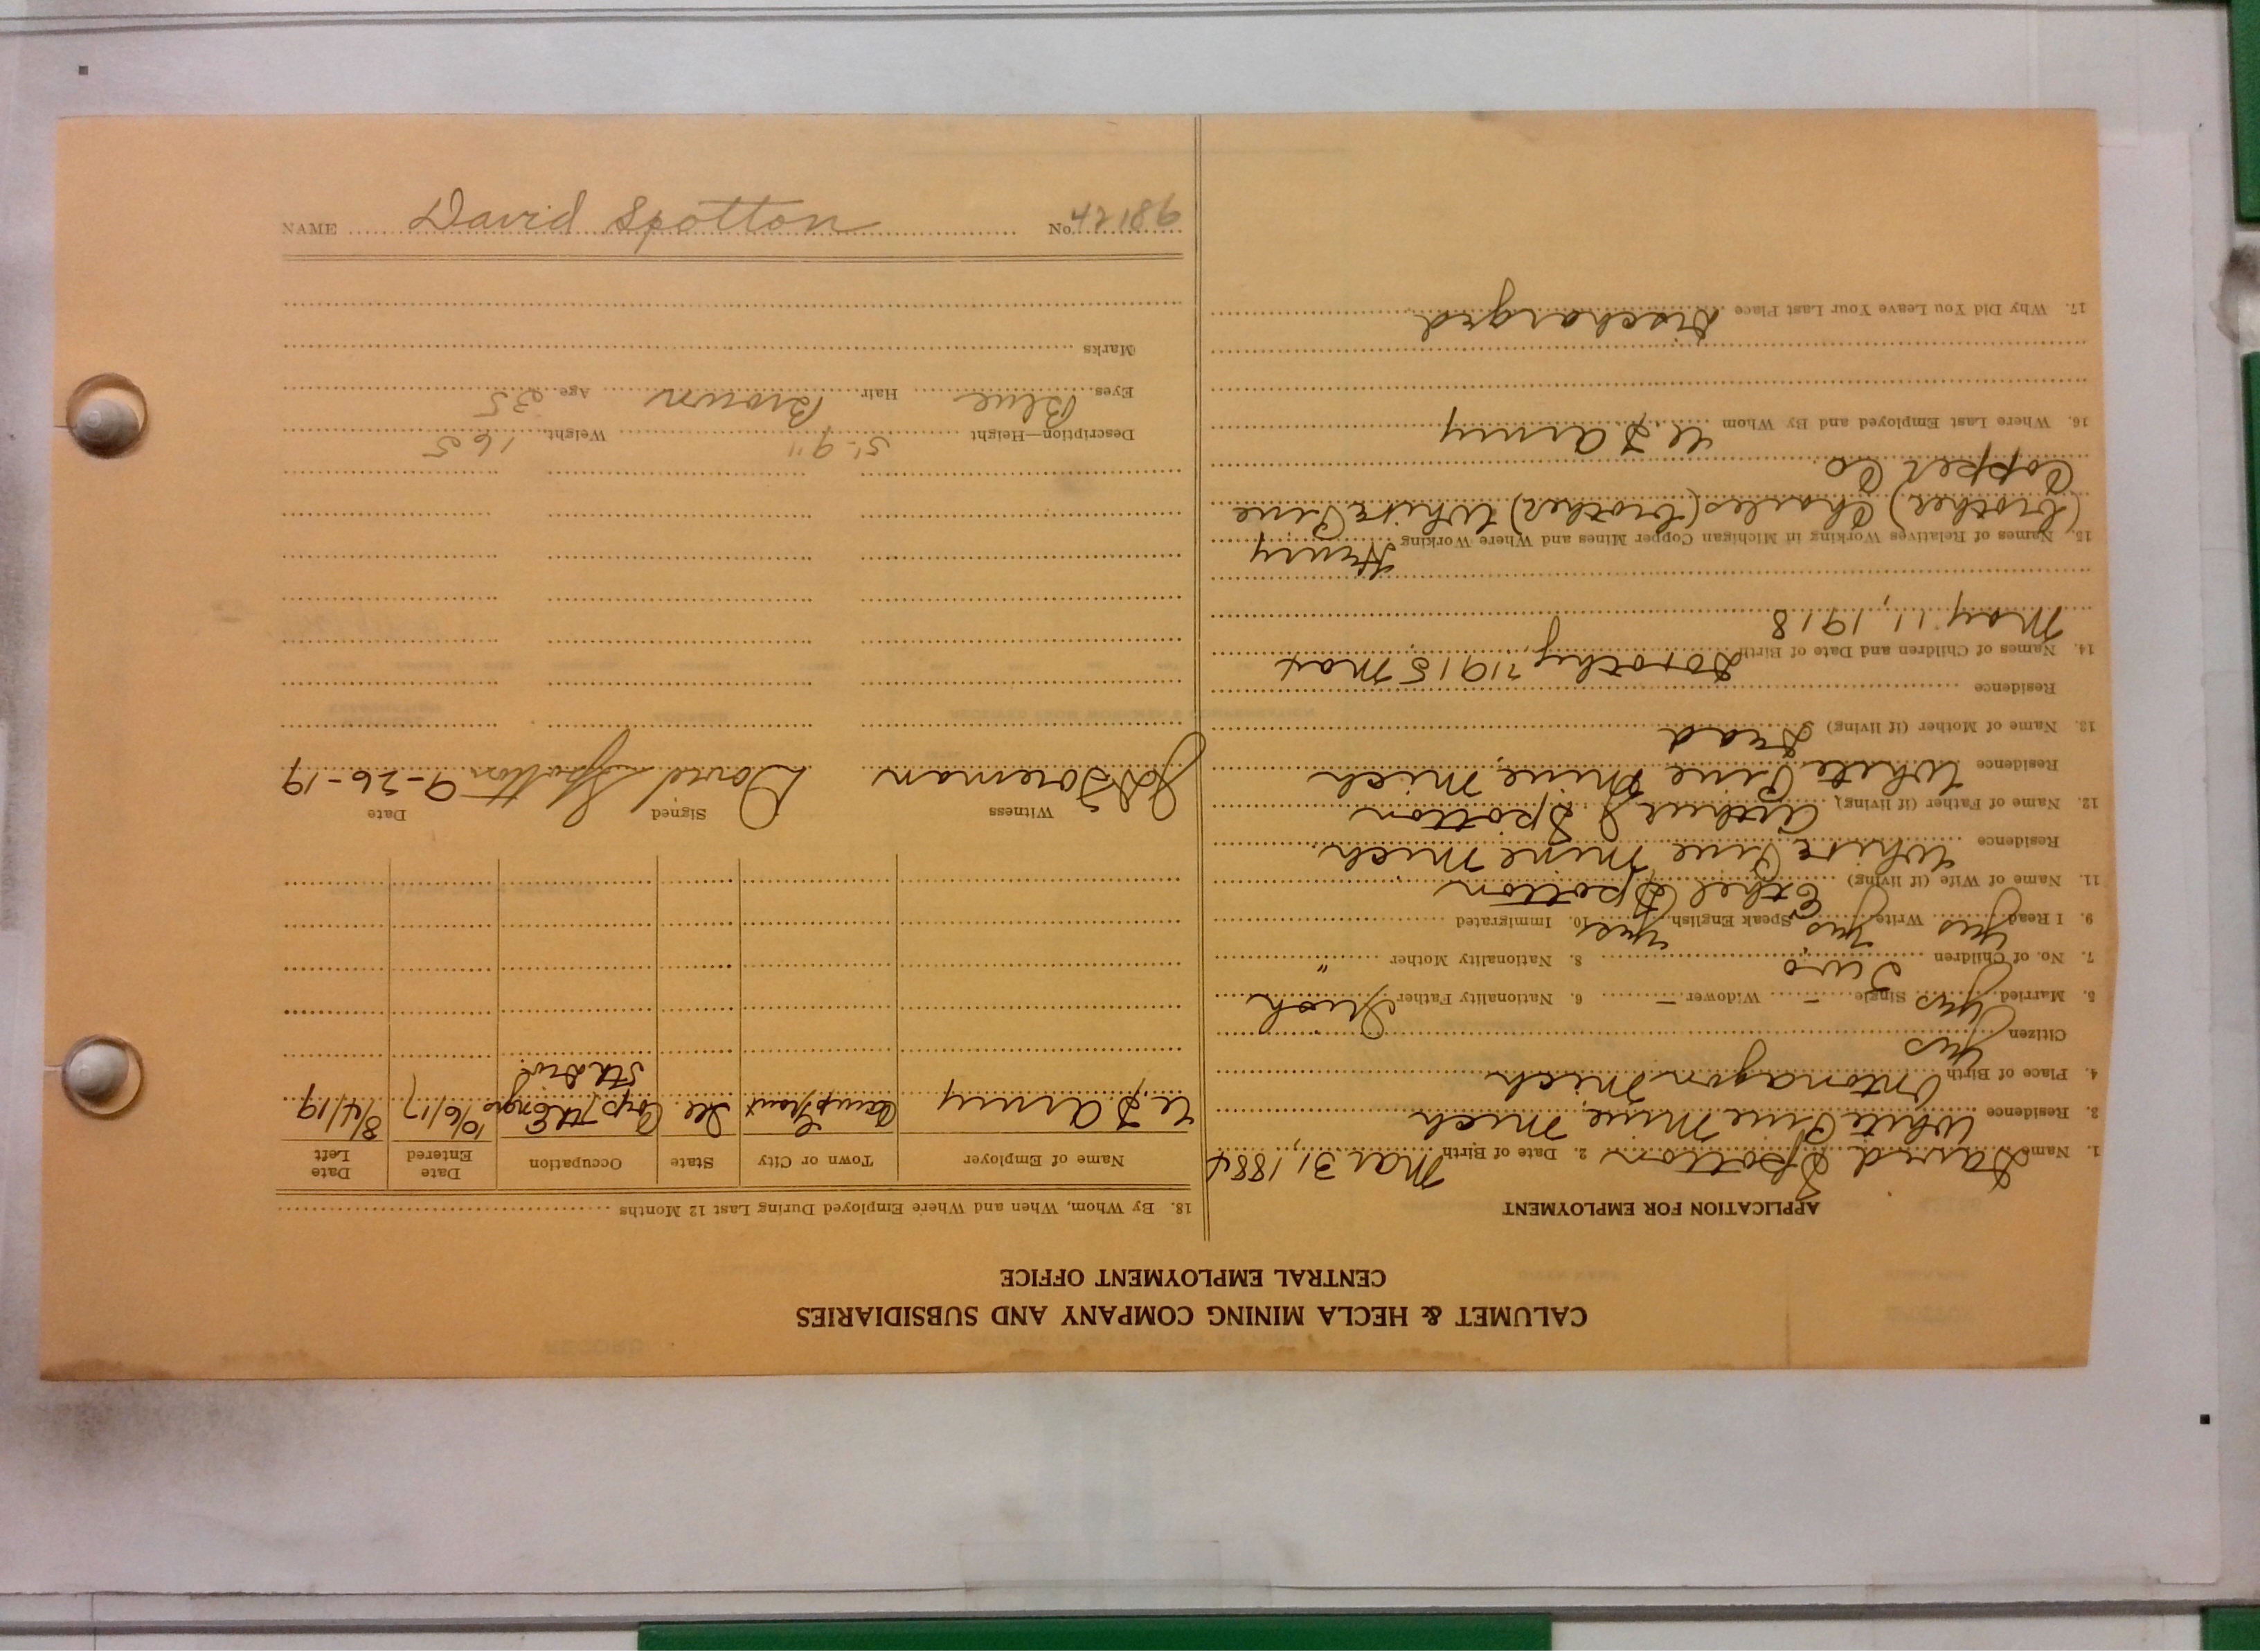 CALUMET & HECLA MINING COMPANY AND SUBSIDIARIES
CENTRAL EMPLOYMENT OFFICE
APPLICATION FOR EMPLOYMENT
1. Name David Spotton 2. Date of Birth Mar 31, 1884
3. Residence White Pine Mine, Mich
4. Place of Birth Ontonagon Mich
Citizen Yes
5. Married Yes Single – Widower – 6. Nationality Father Irish
7. No. of Children Two 8. Nationality Mother "
9. I Read Yes Write Yes Speak English Yes 10. Immigrated
11. Name of Wife (if living) Ethel Spotton
Residence White Pine Mine Mich
12. Name of Father (if living) Arthur J Spotton
Residence White Pine Mine, Mich
13. Name of Mother (if living) Dead
Residence
14. Names of Children and Date of Birth Dorothy, 1915 Max
May 11, 1918
15. Names of Relatives Working in Michigan Copper Mines and Where Working Henry
(brother) Charles (brother) White Pine
Copper Co.
16. Where Last Employed and By Whom U S Army
17. Why Did You Leave Your Last Place Discharged
18. By Whom, When and Where Employed During Last 12 Months
Name of Employer Town or City State Occupation Date Entered Date Left
U. S Army Camp Grant Ill. Corp 7th Engrs 10/6/17 8/4/19
5th Div.
Witness Signed Date
Foreman David Spotton 9-26-19
Description—Height 5'-9" Weight 165
Eyes Blue Hair Brown Age 35
Marks
NAME David Spotton No. 42186